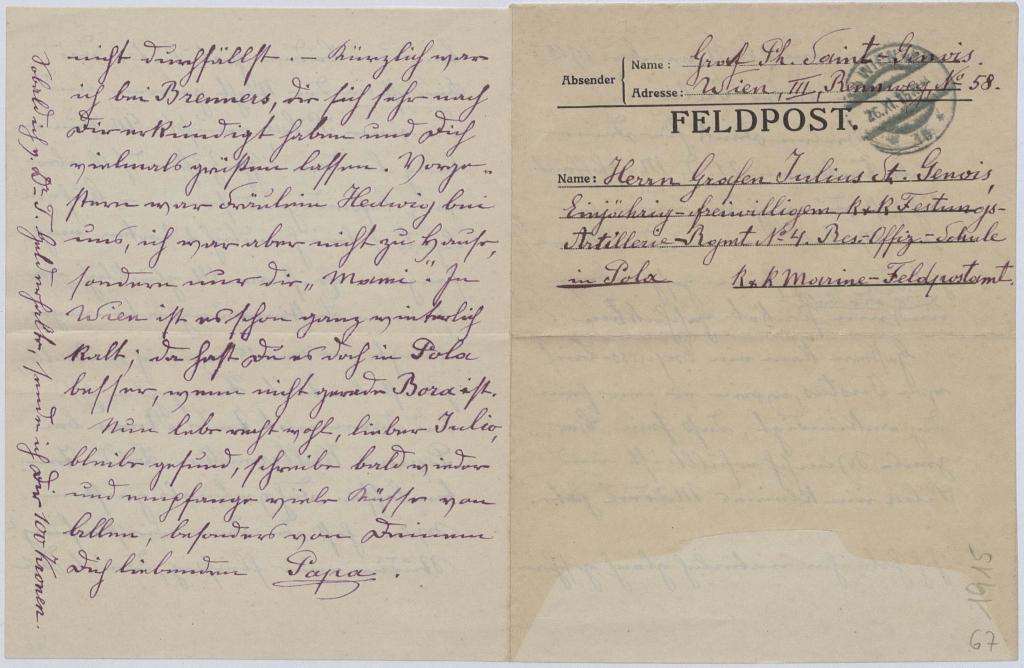 nicht durchfällst. – Kürzlich war
ich bei Brenners, die sich sehr nach
Dir erkundigt haben und Dich
vielmals grüßen lassen. Vorge-
stern war Fräulein Hedwig bei
uns, ich war aber nicht zu Hause,
sondern nur die „Mami“. In
Wien ist es schon ganz winterlich
kalt; da hast Du es doch in Pola
besser, wenn nicht gerade Bora ist.
Nun lebe recht wohl, lieber Julio,
bleibe gesund, schreibe bald wieder
und empfange viele Küsse von
Allen, besonders von Deinem
Dich liebenden Papa.
Sobald ich v. Dr. T. Geld erhalte, sende ich Dir 100 Kronen.
Absender
Name: Graf Ph. Saint-Genois.
Adresse: Wien, III, Rennweg, No 58.
FELDPOST.
Name: Herrn Grafen Julius St. Genois,
Einjährig-freiwilligem, k.u.k Festungs-
Artillerie-Rgmt No 4. Res.-Offiz.-Schule
in Pola k.u.k Marine-Feldpostamt.
WIEN
26.XI.15
1915
67